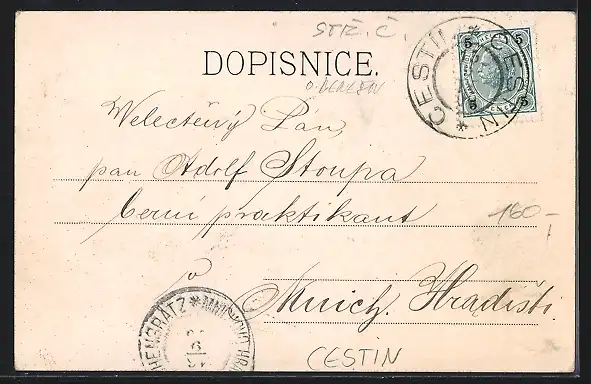 STŘ. Č.
DOPISNICE.
CESTÍN
CESTIN
5 5
5 5
Welectěný Pán,
pan Adolf Stoupa
berní praktikant
160-
v
Mnich. Hradišti.
HENGRATZ * MNICHOVO HRA
CESTIN